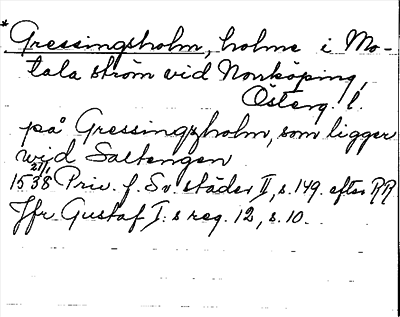 *Gressingsholm, holme i Mo-
tala ström vid Norrköping,
Österg. l.
på Gressingzholm, som ligger
wid Saltengen
21/1
1538 Priv. f. Sv. städer II, s. 149. efter RR
Jfr Gustaf I:s reg. 12, s. 10.